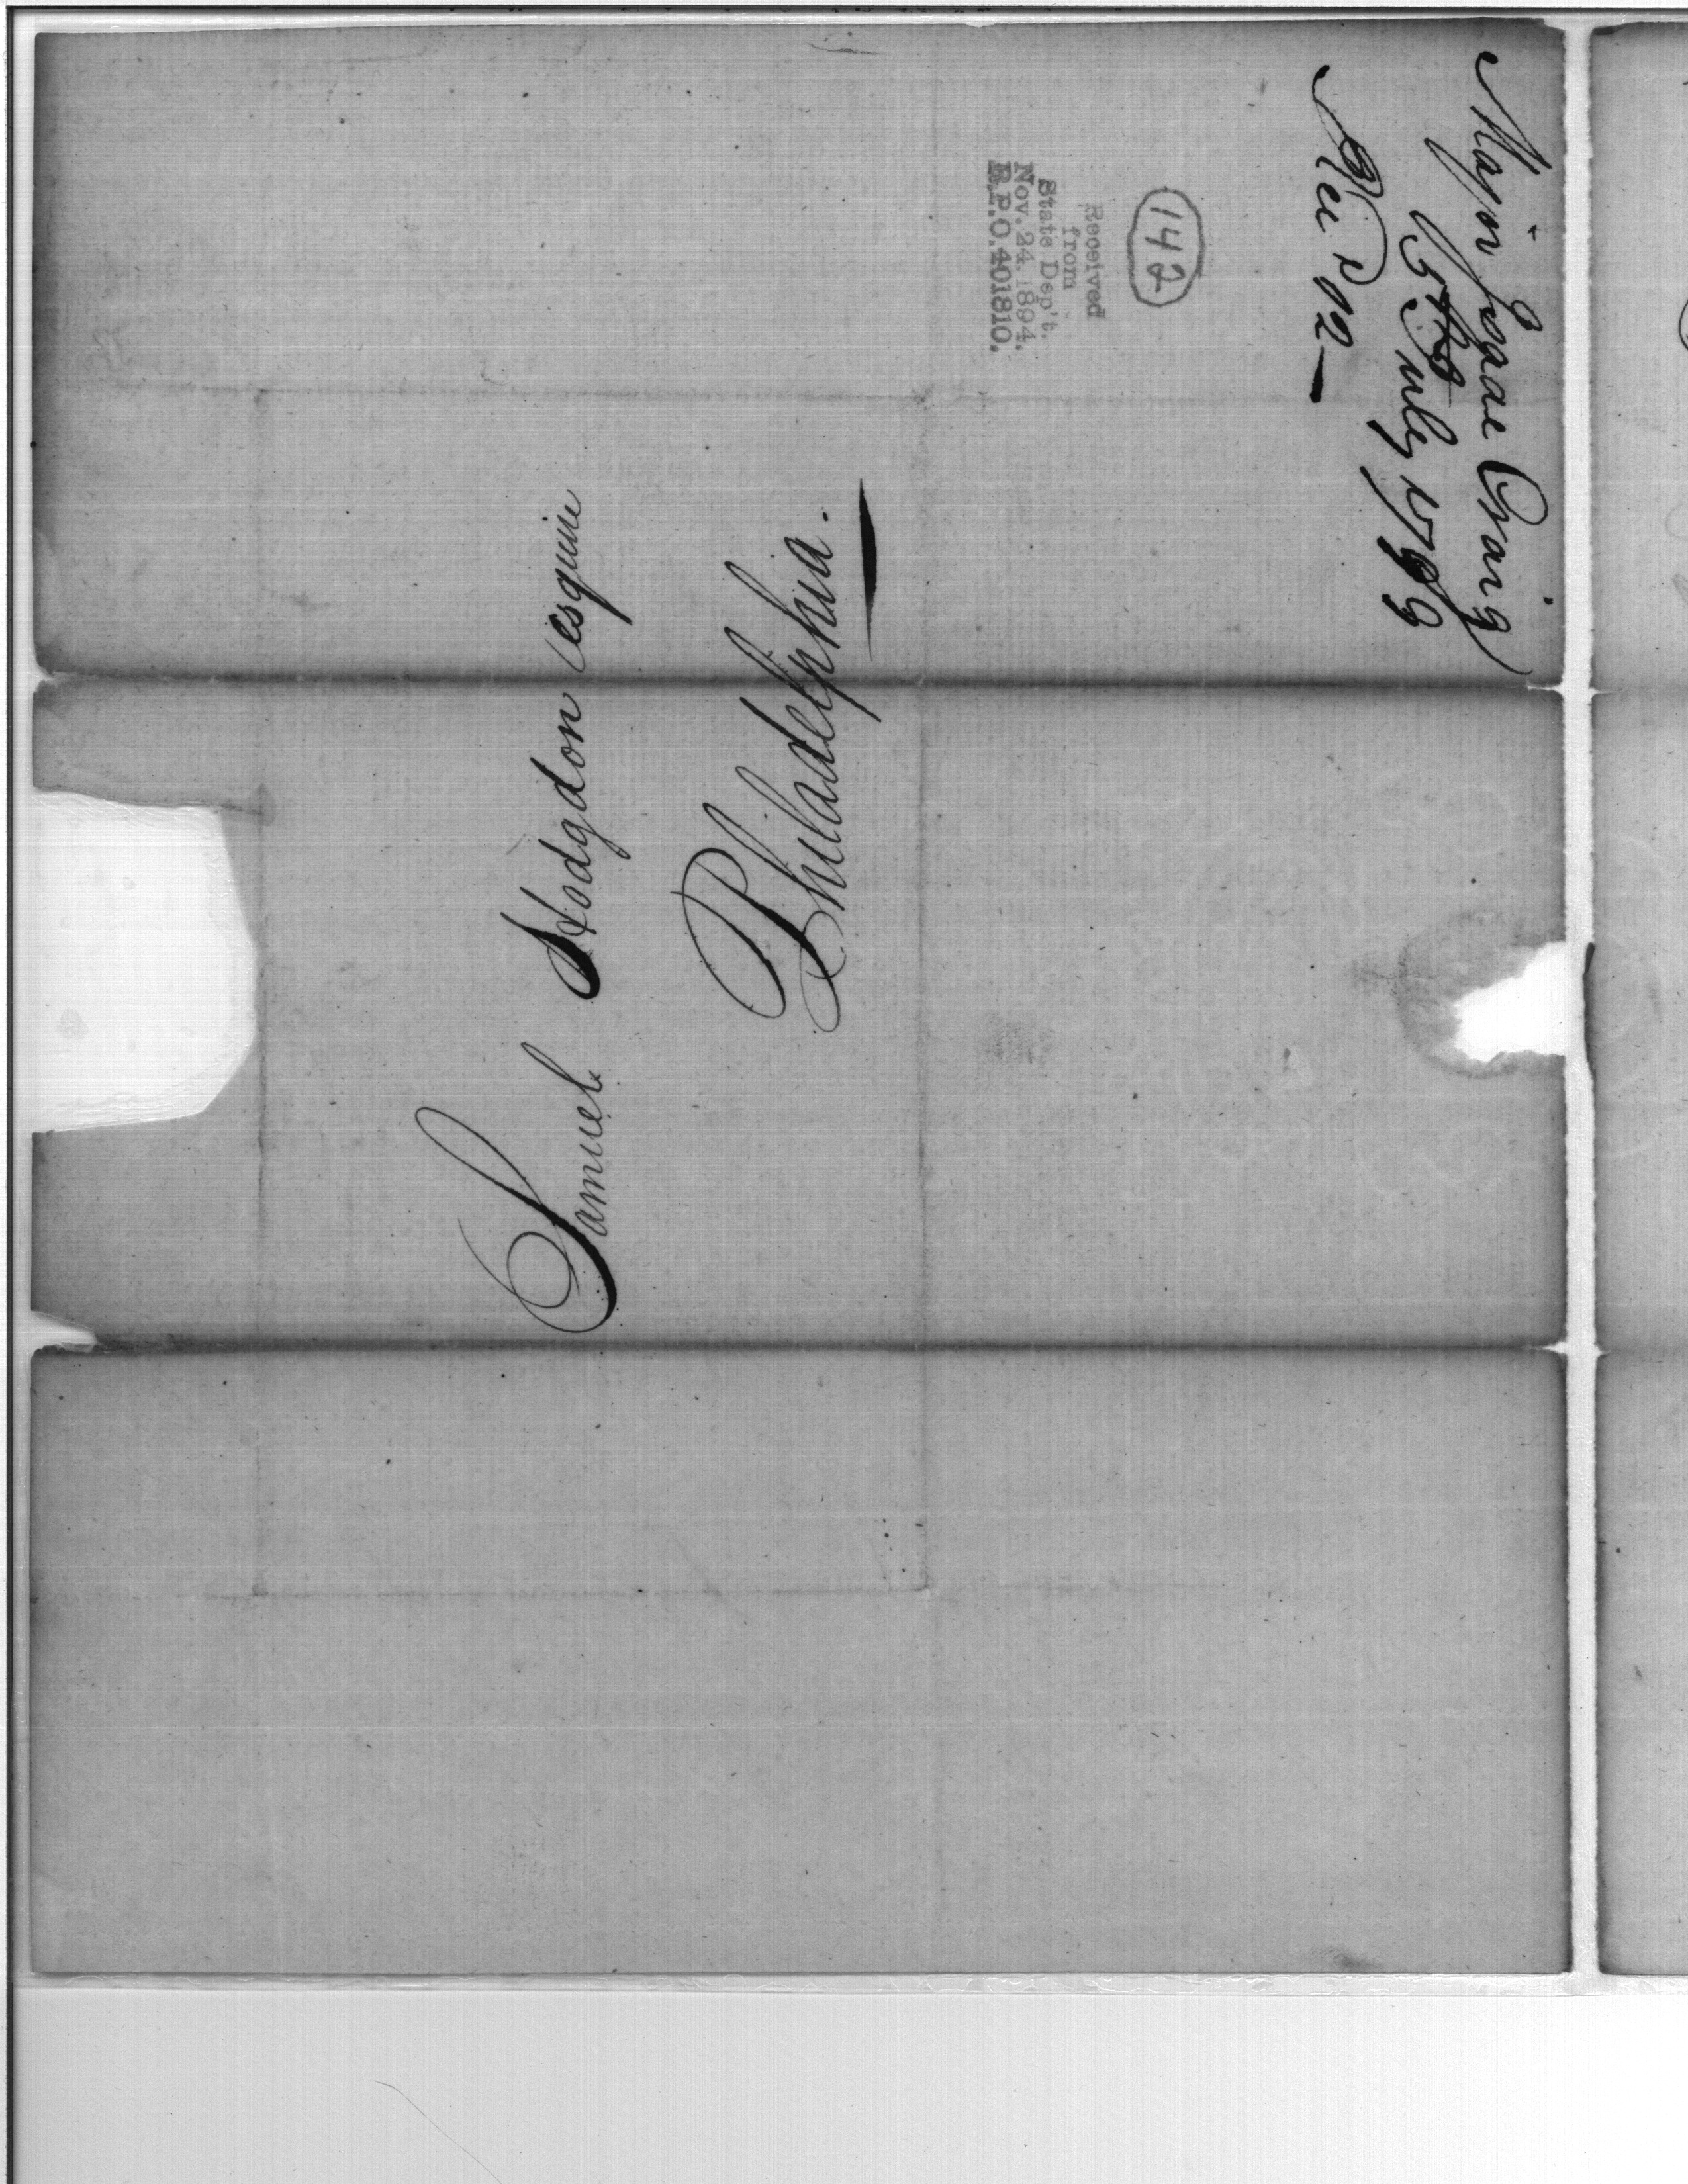 Major Isaac Craig
5th July 1789
142
Received
from
State Dep't.
Nov. 24. 1894.
R.P.O. 401810.
Samuel Hodgdon esquire
Philadelphia.